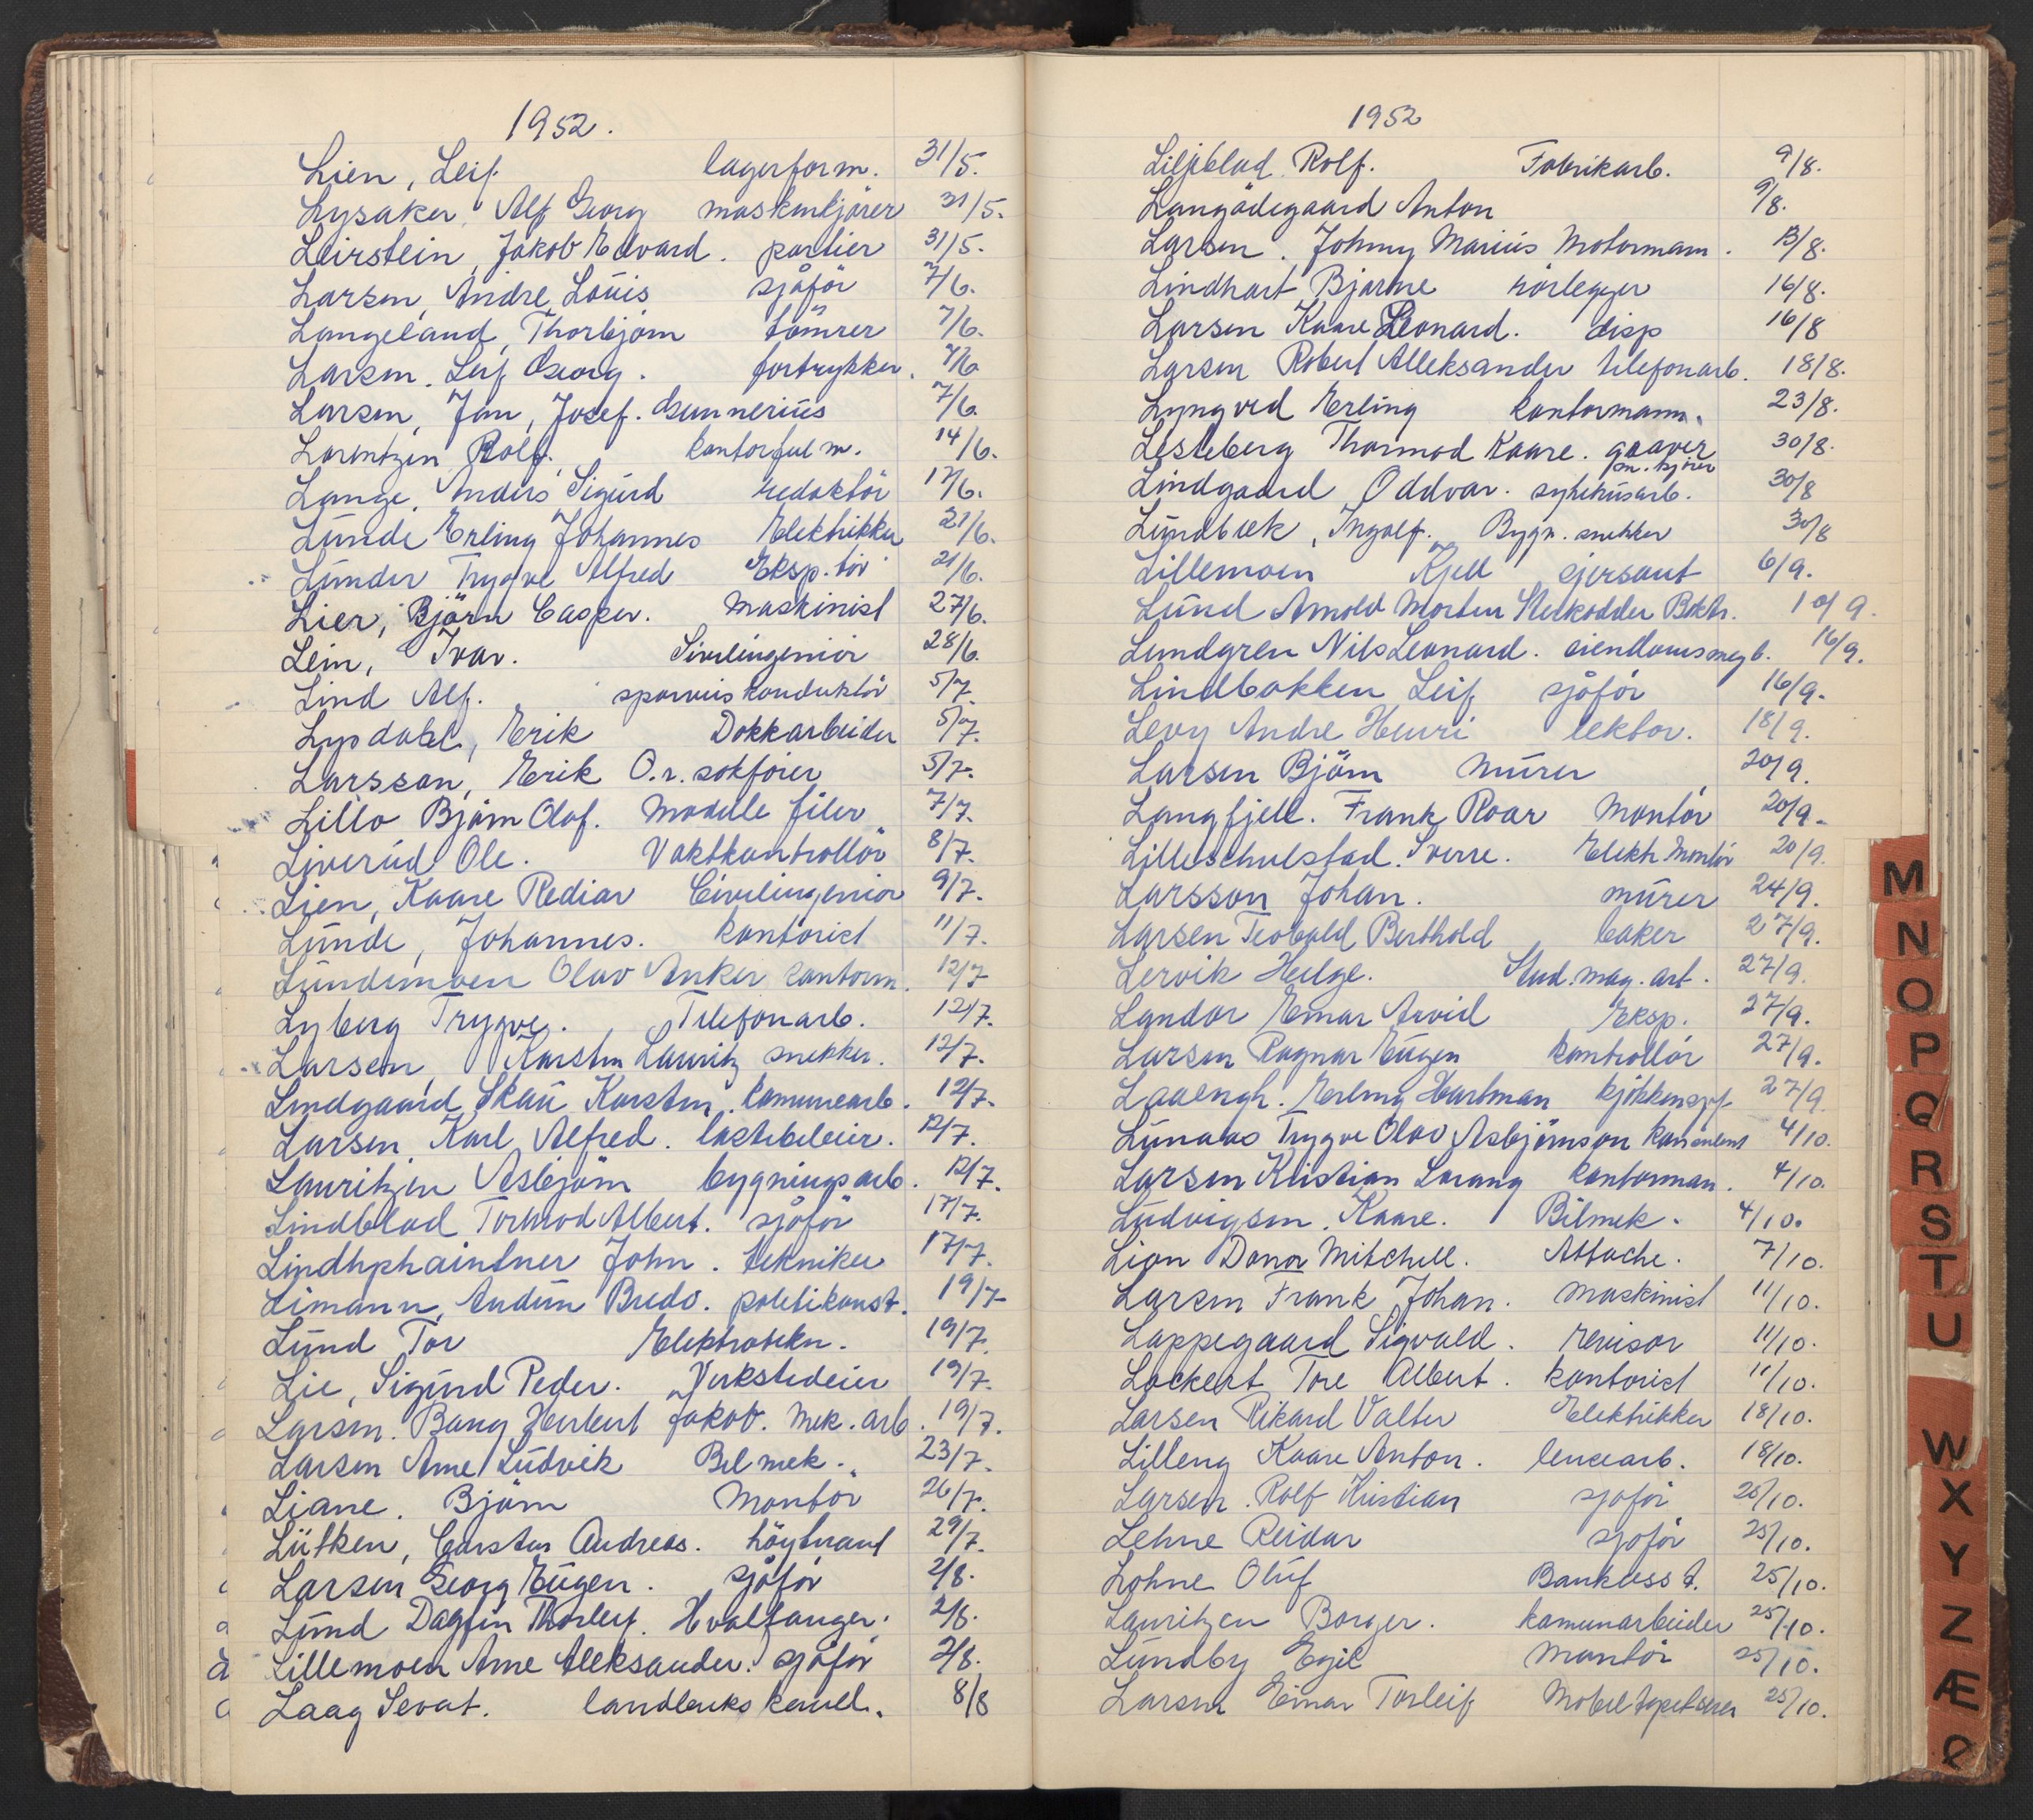 1952.
Lien, Leif. lagerform. 31/5.
Lysaker Alf Georg maskinkjörer 31/5.
Leirstein, Jakob Edvard. portier 31/5.
Larsen, Andre Louis sjåför 7/6.
Langeland, Thorbjörn tömrer 7/6.
Larsen. Leif Georg. fortrykker. 7/6
Larsen, Jan, Josef. Gunnerius 7/6.
Lorentzen Rolf. kontorfulm. 14/6.
Lange, Anders Sigurd redaktör 17/6.
Lunde Erling Johannes Elektrikker 21/6.
Lunder Trygve Alfred Eksp.tör 21/6.
Lier, Björn Casper. Maskinist 27/6.
Lein, Ivar. Sivilingeniör 28/6.
Lind Alf. sporveiskonduktör 5/7.
Lysdahl, Erik Dokkarbeider 5/7.
Larsson, Erik O.r.sakförer 5/7.
Lillo Björn Olaf. Modelle filer 7/7.
Liverud Ole. Vaktkontrollör 8/7.
Lien, Kaare Rediar Civilingeniör 9/7.
Lunde, Johannes. kontorist 11/7.
Lundemoen Olav Anker kontorm. 12/7
Lyberg Trygve. Telefonarb. 12/7.
Larsen, Karsten Lauritz snekker. 12/7.
Lindgaard Skau Karsten. kommunearb. 12/7.
Larsen. Karl Alfred. lastebileier. 12/7.
Lauritzen Asbjörn bygningsarb. 12/7.
Lindblad Tormod Albert. sjåför 17/7.
Lindhphaintner John. tekniker 17/7.
Limann, Audun Bredo. politikonst. 19/7
Lund Tor Elektrotekn. 19/7.
Lie, Sigurd Peder. Verkstedeier 19/7.
Larsen. Bang Herbert Jakob. Mek.arb. 19/7.
Larsen Arne Ludvik Bilmek. 23/7.
Liane. Björn Montör 26/7.
Lütken, Carsten Andreas. löytnant 29/7.
Larsen Georg Eugen. sjåför 2/8.
Lund Dagfin Thorleif. Hvalfanger. 2/8.
Lillemoen Arne Aleksander. sjåför 2/8.
Laag Sevat. landbrukskand. 8/8
1952
Liljeblad Rolf. Fabrikarb. 9/8.
Langödegaard Anton 9/8.
Larsen. Johnny Marius Motormann. 13/8.
Lindhart Bjarne rörlegger 16/8.
Larsen Kaare Leonard. disp 16/8
Larsen Robert Alleksander telefonarb. 18/8.
Lyngved Erling kontormann. 23/8.
Lesteberg Thormod Kaare. graver 30/8.
Lindgaard Oddvar. sykehusarb. 30/8
Lundbæk, Ingolf. Bygn.snekker 30/8
Lillemoen Kjell sjersant 6/9.
Lund Arnold Morten 10/9.
Lundgren Nils Leonard. eiendomsmegl. 16/9.
Lindbakken Leif sjåför 16/9.
Levy Andre Henri lektor. 18/9.
Larsen Björn Murer 20/9.
Langfjell. Frank Roar Montör 20/9.
Lilleschulstad. Sverre. Elektr Montör 20/9.
Larsson Johan. murer 24/9.
Larsen Teobald Berthold baker 27/9.
Lervik Helge. Stud.mag.art. 27/9.
Landor Einar Arvid Eksp. 27/9.
Larsen Ragnar Eugen kontrollör 27/9.
Laaengh. Erling Hartman 27/9
Lunaas Trygve Olav Asbjörnson 4/10.
Larsen Kristian Lorang kontorman. 4/10.
Ludvigsen. Kaare. Bilmek. 4/10.
Lion Donor Mitchell. Attache. 7/10.
Larsen Frank Johan. Maskinist 11/10.
Lappegaard Sigvald. revisor 11/10.
Lockert Tore Albert. kontorist 11/10.
Larsen Rikard Valter Elektrikker 18/10.
Lilleng Kaare Anton. 18/10.
Larsen. Rolf Kristian sjåför 25/10.
Lehne Reidar sjåför 25/10.
Lohne Oluf Bankass t. 25/10.
Lauritzen Borger. kommunarbeider 25/10.
Lundby Egil Montör 25/10.
Larsen Einar Torleif Möbeltapetserer 25/10.
M
N
O
P
Q
R
S
T
U
W
X
Y
Z
Æ
Ø